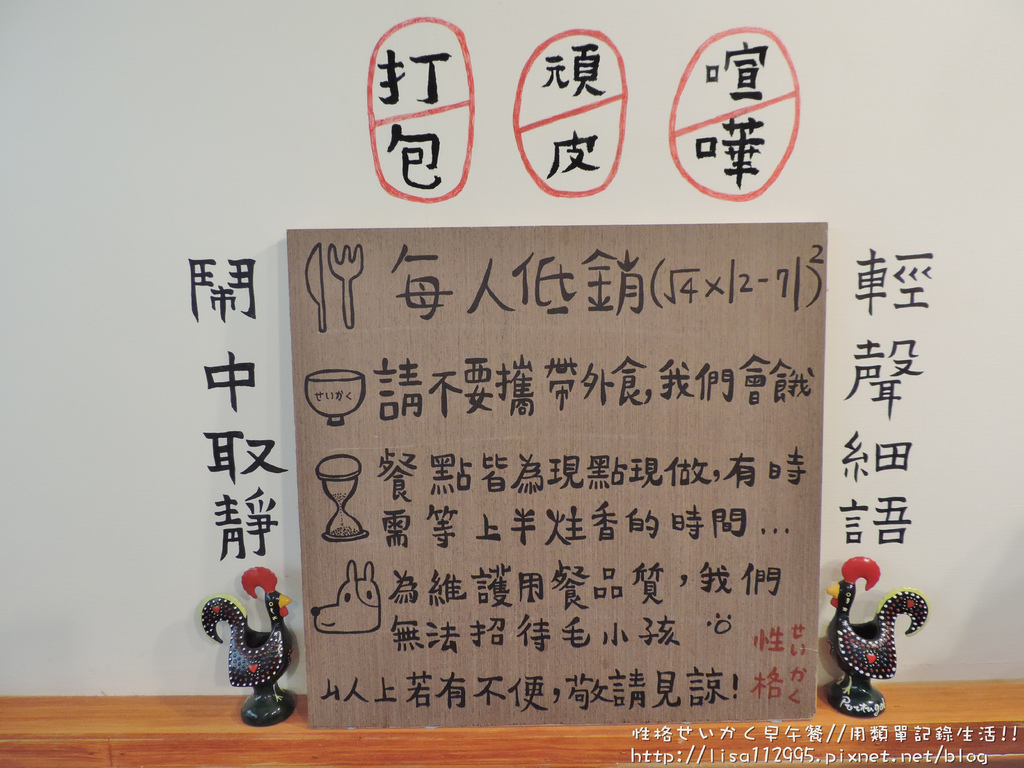 打包
頑皮
喧嘩
鬧中取靜
輕聲細語
每人低銷(√4×|2-7|)²
せいかく
請不要攜帶外食,我們會餓
餐點皆為現點現做,有時
需等上半炷香的時間...
為維護用餐品質,我們
無法招待毛小孩
以上若有不便,敬請見諒!
性格
せいかく
Portugal
性格せいかく早午餐//用類單記錄生活!!
http://lisa112995.pixnet.net/blog